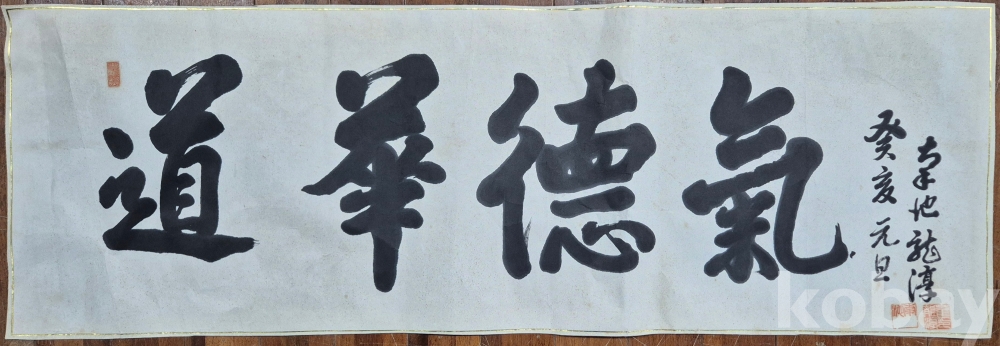 道華德氣
癸亥元旦
池龍淳
kobay